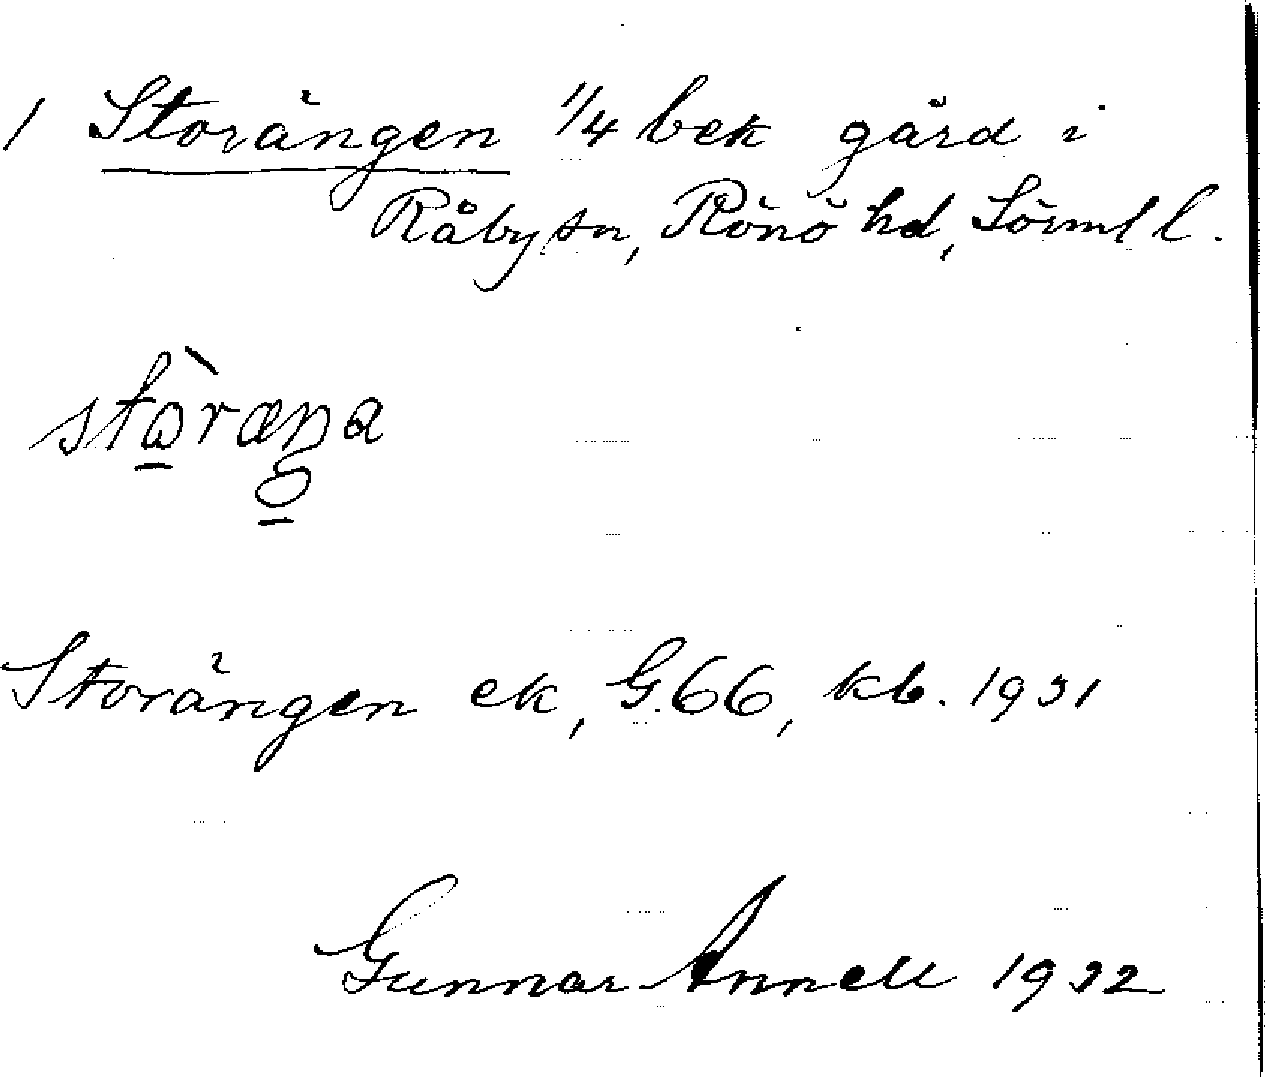 1 Storängen 1/4 bek gård i
Råby sn, Rönö hd, Sörml l.
Storängen ek, G.66, kb. 1931
Gunnar Annell 1932